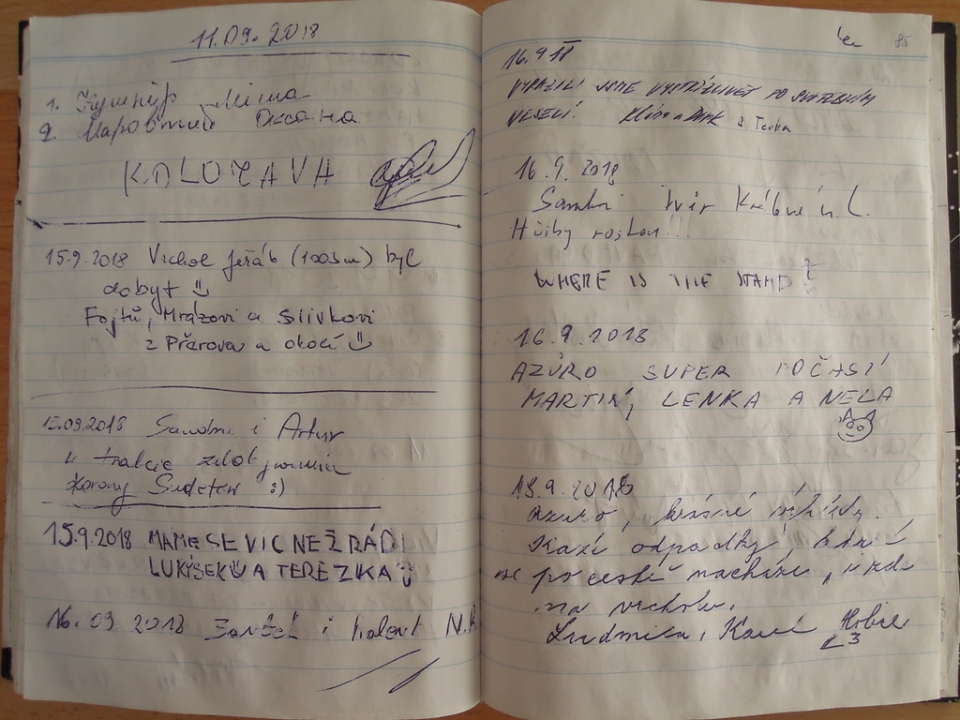 11.09.2018
1.
2. Оксана
KOLOČAVA
15.9.2018 Vrchol Jeřáb (1003m) byl
dobyt
Fojtů, Mrázovi a Slívkovi
z Přerova a okolí
15.09.2018 Sandra i Artur
w trakcie zdobywania
Korony Sudetów :)
15.9.2018 MÁME SE VÍC NEŽ RÁDI
LUKÝSEK A TEREZKA
16.09.2018 i
85
16.9 18
VYRAZILI JSME VYSTŘÍZLIVĚT PO
VESELÍ. & Terka
16.9.2018
Hřiby rostou!!!
WHERE IS THE STAMP?
16.9.2018
AZÚRO SUPER POČASÍ
MARTIN, LENKA A NELA
18.9.2018
azuro, krásné výhledy.
Kazí odpadky, které
se po cestě nachází, i zde
na vrcholu.
Ludmila, Karel